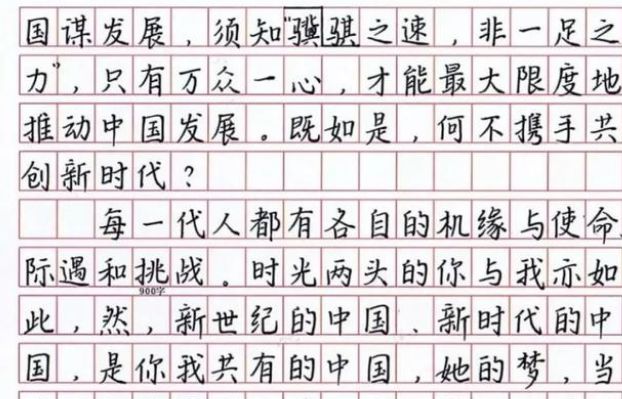 国谋发展，须知“骥骐之速，非一足之
力”，只有万众一心，才能最大限度地
推动中国发展。既如是，何不携手共
创新时代？
每一代人都有各自的机缘与使命
际遇和挑战。时光两头的你与我亦如
900字
此，然，新世纪的中国、新时代的中
国，是你我共有的中国，她的梦，当